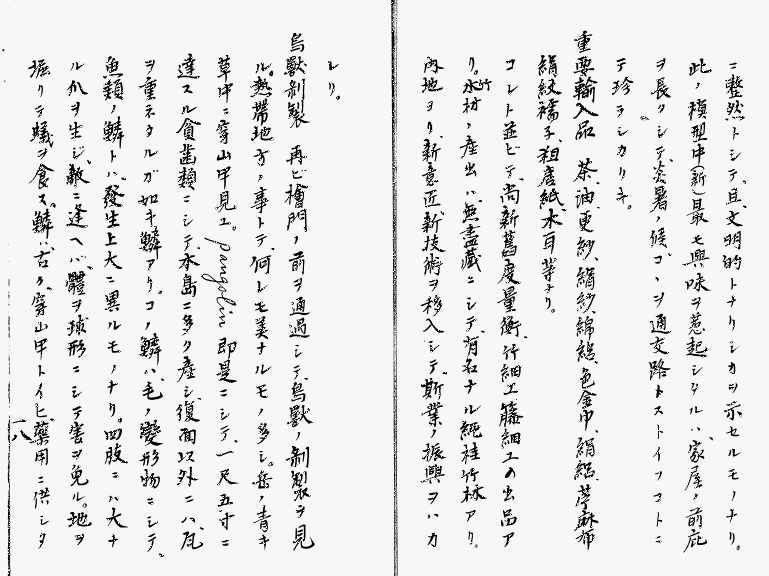 ニ整然トシテ、且、文明的トナリシカヲ示セルモノナリ。
此ノ模型中(新)最モ興味ヲ惹起シタルハ、家屋ノ前庇
ヲ長クシテ、炎暑ノ候、コヽヲ通交路トストイフコトニ
テ珍ラシカリキ。
重要輸入品 茶、油、更紗、絹紗、綿繻、色金巾、絹繻、苧麻布
絹紋繻子、粗唐紙、木耳等ナリ。
コレト並ビテ、尚新舊度量衡、竹細工、籐細工の出品ア
リ。竹木材ノ産出ハ、無盡藏ニシテ、有名ナル純桂竹林アリ。
内地ヨリ、新意匠、新技術ヲ移入シテ、斯業ノ振興ヲハカ
レリ。
鳥獸剥製 再ビ檜門ノ前ヲ通過シテ、鳥獸ノ剥製ヲ見
ル。熱帶地方ノ事トテ、何レモ美ナルモノ多シ。岳ノ青キ
草中ニ穿山甲見ユ。pangolin 即是ニシテ、一尺五寸ニ
達スル貧齒類ニシテ、本島ニ多ク産シ、復面以外ニハ、瓦
ヲ重ネタルガ如キ鱗アリ。コノ鱗ハ、毛ノ變形物ニシテ、
魚類ノ鱗トハ、發生上大ニ異ルモノナリ。四肢ニハ大ナ
ル爪ヲ生ジ、敵ニ逢ヘバ、體ヲ球形ニシテ害ヲ免ル。地ヲ
堀リテ蟻ヲ食ス。鱗ハ、古ク、穿山甲トイヒ、藥用ニ供シタ
一八